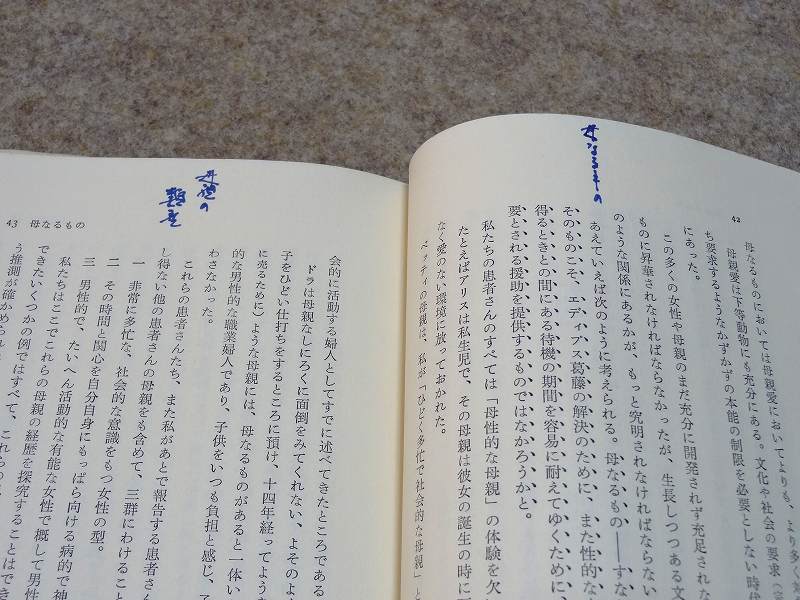 42
母なるものにおいては母親愛においてよりも、より多く
母親愛は下等動物にも充分にある。文化や社会の要求（
ち要求するようなかずかずの本能の制限を必要としない時代
にあった。
この多くの女性や母親のまだ充分に開発されず充足されな
ものに昇華されなければならなかったが、生長しつつある文
のような関係にあるかが、もっと究明されなければならない
あえていえば次のように考えられる。母なるもの――すな
そのものこそ、エディプス葛藤の解決のために、また性的な
得るときとの間にある待機の期間を容易に耐えてゆくために、
要とされる援助を提供するものではなかろうかと。
私たちの患者さんのすべては「母性的な母親」の体験を欠
たとえばアリスは私生児で、その母親は彼女の誕生の時に
なく愛のない環境に放っておかれた。
ベッティの母親は、私が「ひどく多忙で社会的な母親」と
43 母なるもの
会的に活動する婦人としてすでに述べてきたところである
ドラは母親なしにろくに面倒をみてくれない、よそのよ
子をひどい仕打ちをするところに預け、十四年経ってよう
に売るために）ような母親には、母なるものがあると一体い
的な男性的な職業婦人であり、子供をいつも負担と感じ、
わさなかった。
これらの患者さんたち、また私があとで報告する患者さん
し得ない他の患者さんの母親をも含めて、三群にわけること
一 非常に多忙な、社会的な意識をもつ女性の型。
二 その時間と関心を自分自身にもっぱら向ける病的で神
三 男性的で、たいへん活動的な有能な女性で概して男性
私たちはここでこれらの母親の経歴を探究することはでき
できたいくつかの例ではすべて、これらの
う推測が確かめられ